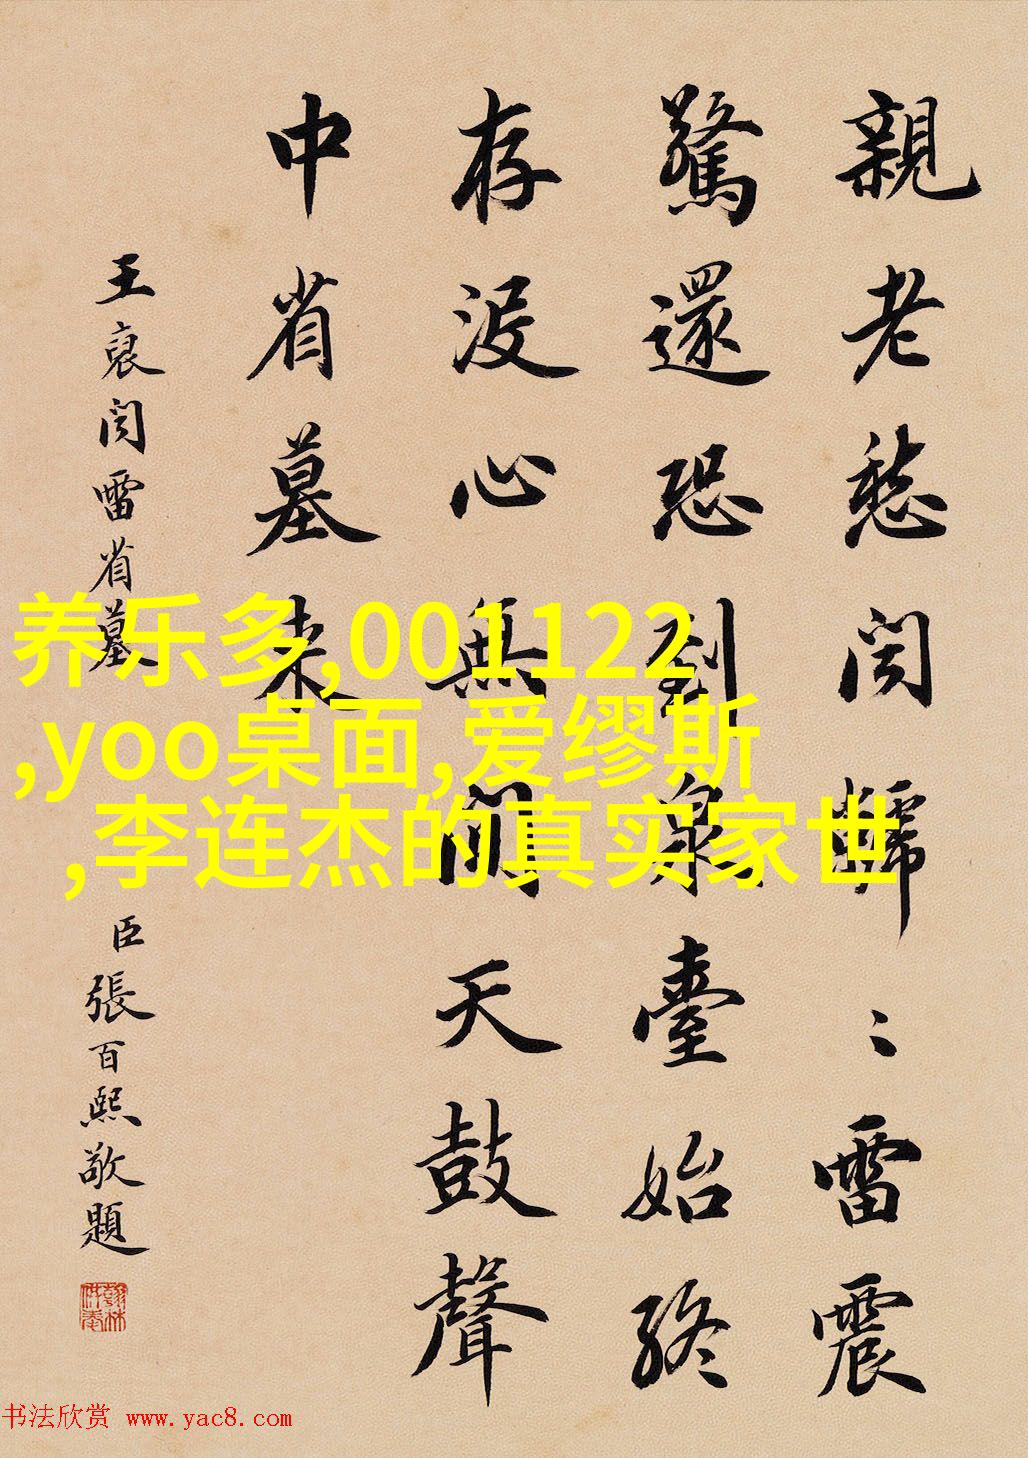 親老愁聞歸〻雷震
驚還恐到泉臺始終
存沒心無間天鼓聲
中省墓來
王裒聞雷省墓
臣張百熙敬題
养乐多,001122
,yoo桌面,爱缪斯
,李连杰的真实家世
书法欣赏 www.yac8.com